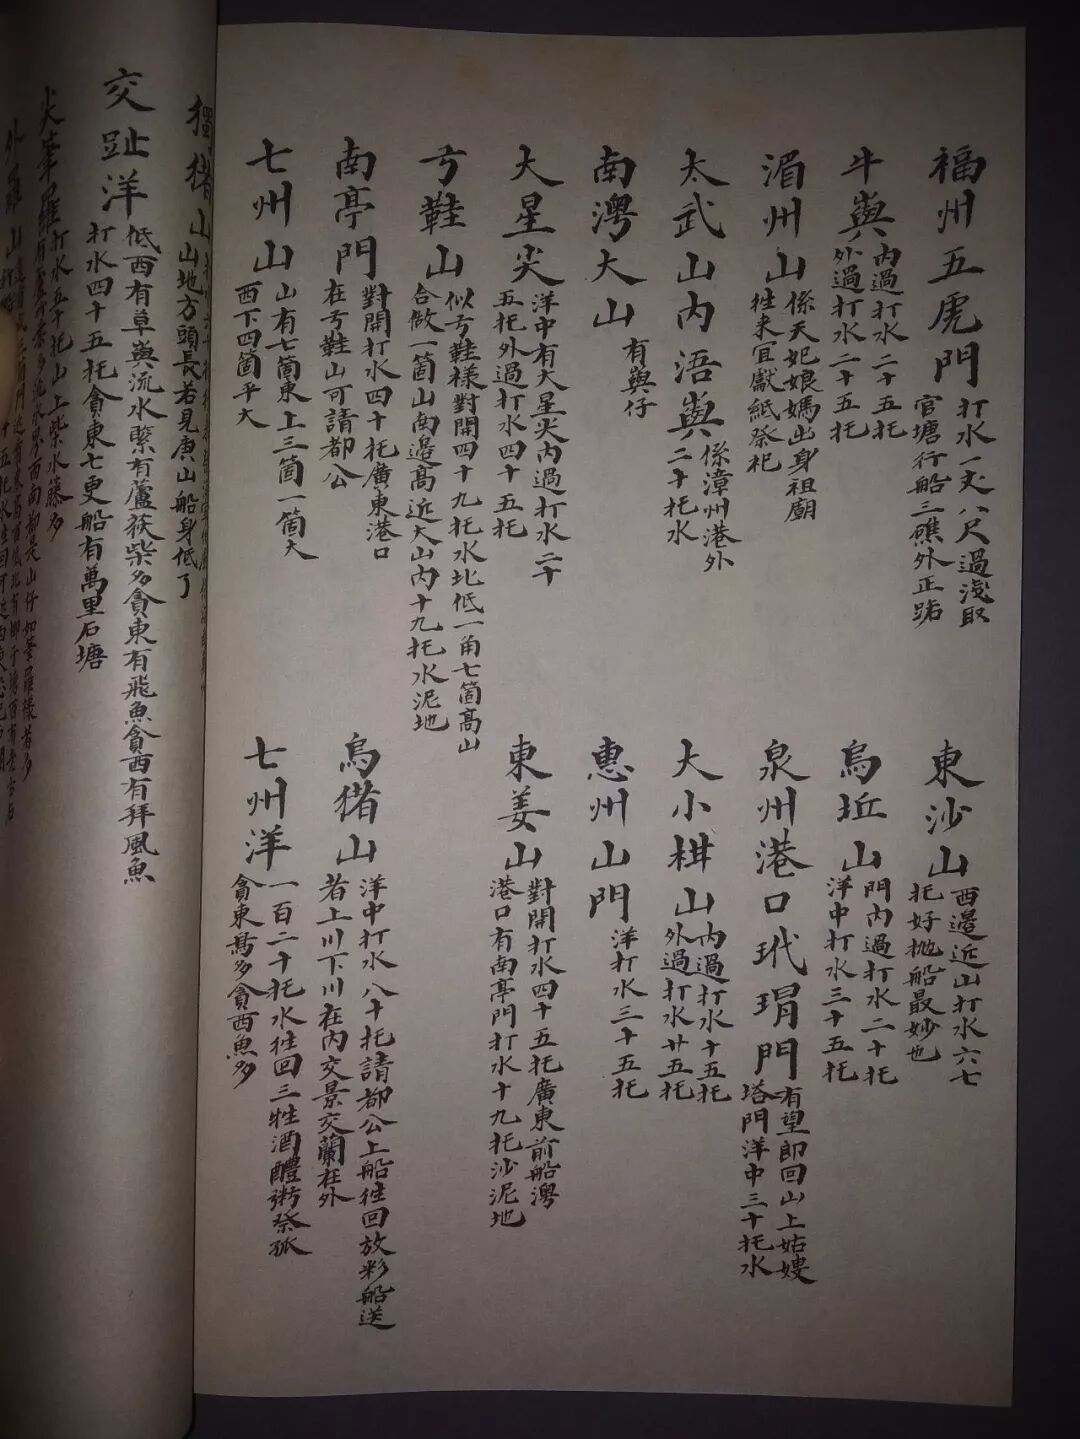 福州五虎門
打水一丈八尺過淺取
官塘行船三礁外正路
東沙山
西邊近山打水六七
托好抛船最妙也
牛嶼
內過打水二十五托
外過打水二十五托
烏坵山
門內過打水二十托
洋中打水三十五托
湄州山
係天妃娘媽出身祖廟
往来宜獻紙祭祀
泉州港口玳瑁門
有望郎回山上姑嫂
塔門洋中三十托水
太武山內浯嶼
係漳州港外
二十托水
大小柑山
內過打水十五托
外過打水廿五托
南澳大山
有嶼仔
惠州山門
洋打水三十五托
大星尖
洋中有大星尖內過打水二十
五托外過打水四十五托
東姜山
對開打水四十五托廣東前船澳
港口有南亭門打水十九托沙泥地
弓鞋山
似弓鞋樣對開四十九托水北低一角七箇高山
合做一箇山南邊高近大山內十九托水泥地
南亭門
對開打水四十托廣東港口
在弓鞋山可請都公
烏猪山
洋中打水八十托請都公上船往回放彩船送
者上川下川在內交景交蘭在外
七州山
山有七箇東上三箇一箇大
西下四箇平大
七州洋
一百二十托水往回三牲酒醴粥祭孤
貪東鳥多貪西魚多
獨猪山
山地方頭長若見庚山船身低了
交趾洋
低西有草嶼流水緊有蘆荻柴多貪東有飛魚貪西有拜風魚
打水四十五托貪東七更船有萬里石塘
尖筆羅
打水五十托山上柴水藤多
外羅山